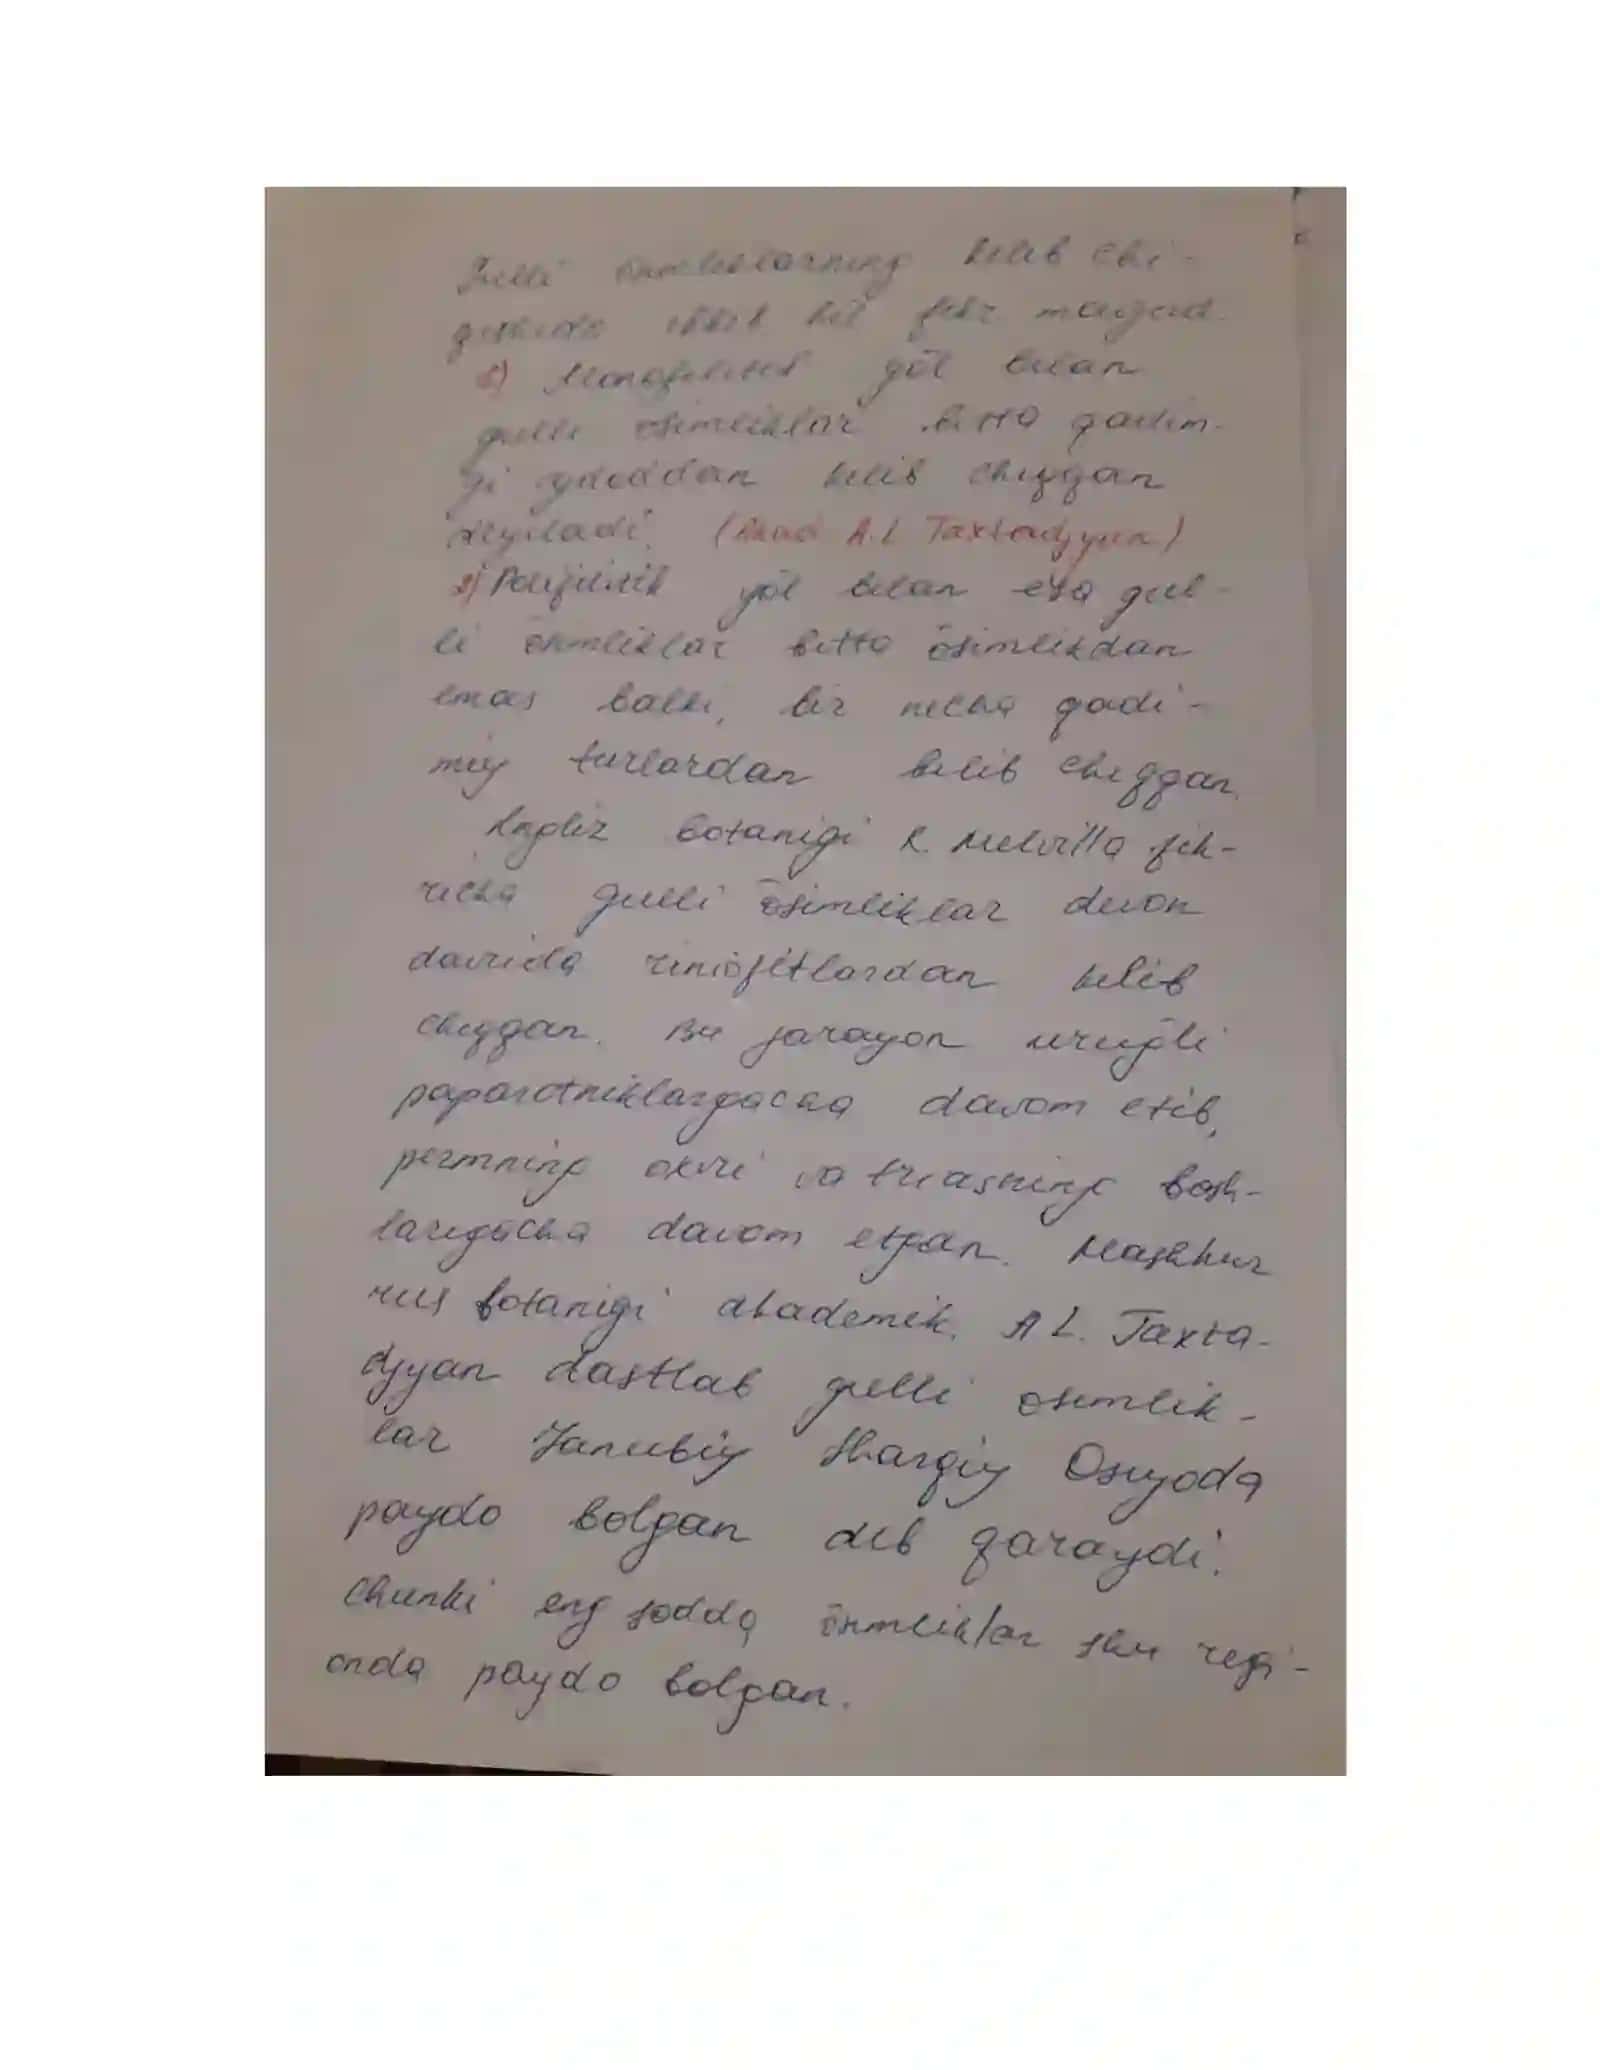 Gulli ōsimliklarning kelib chi-
qishida ikki xil fikr mavjud.
1) Monofiletik yōl bilan
gulli ōsimliklar bitta qadim-
gi ajdoddan kelib chiqqan
deyiladi. (Akad A.L Taxtadjyan)
2) Polifiletik yōl bilan esa gul-
li ōsimliklar bitta ōsimlikdan
emas balki, bir necha qadi-
miy turlardan kelib chiqqan.
Angliz botanigi R. Melvilla fik-
richa gulli ōsimliklar devon
davrida riniofitlardan kelib
chiqqan. Bu jarayon urugli
paparotniklargacha davom etib,
permning oxiri va triasning bosh-
larigacha davom etgan. Mashhur
rus botanigi akademik. A L. Taxta-
djyan dastlab gulli osimlik-
lar Janubiy Sharqiy Osiyoda
paydo bolgan deb qaraydi.
Chunki eng sodda ōsimliklar shu regi-
onda paydo bolgan.